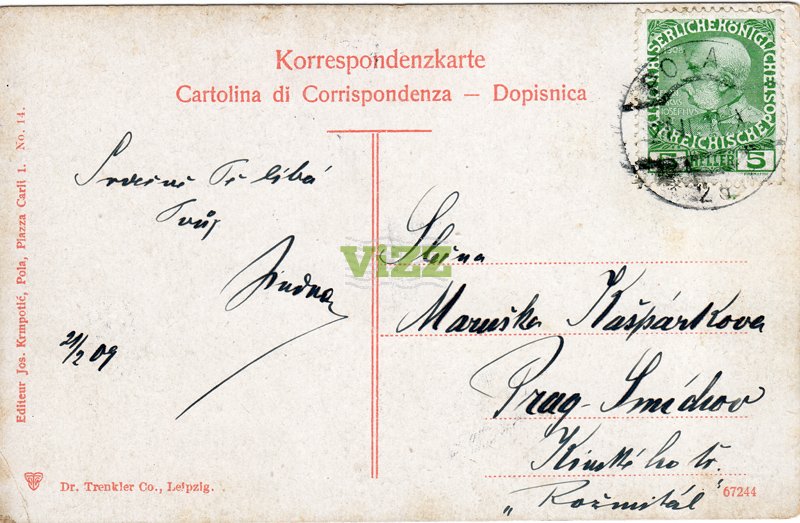 Korrespondenzkarte
Cartolina di Corrispondenza — Dopisnica
KAISERLICHE KÖNIGLICHE ÖSTERREICHISCHE POST
5 HELLER 5
POLA
Srdečně Tě líbá
Tvůj
Jindra
21/2 09
Slečna
Maruška Kašpárkova
Prag-Smíchov
Kinského tř.
„Rožmitál"
VIZZ
Editeur Jos. Krmpotić, Pola, Piazza Carli 1. No. 14.
Dr. Trenkler Co., Leipzig.
67244